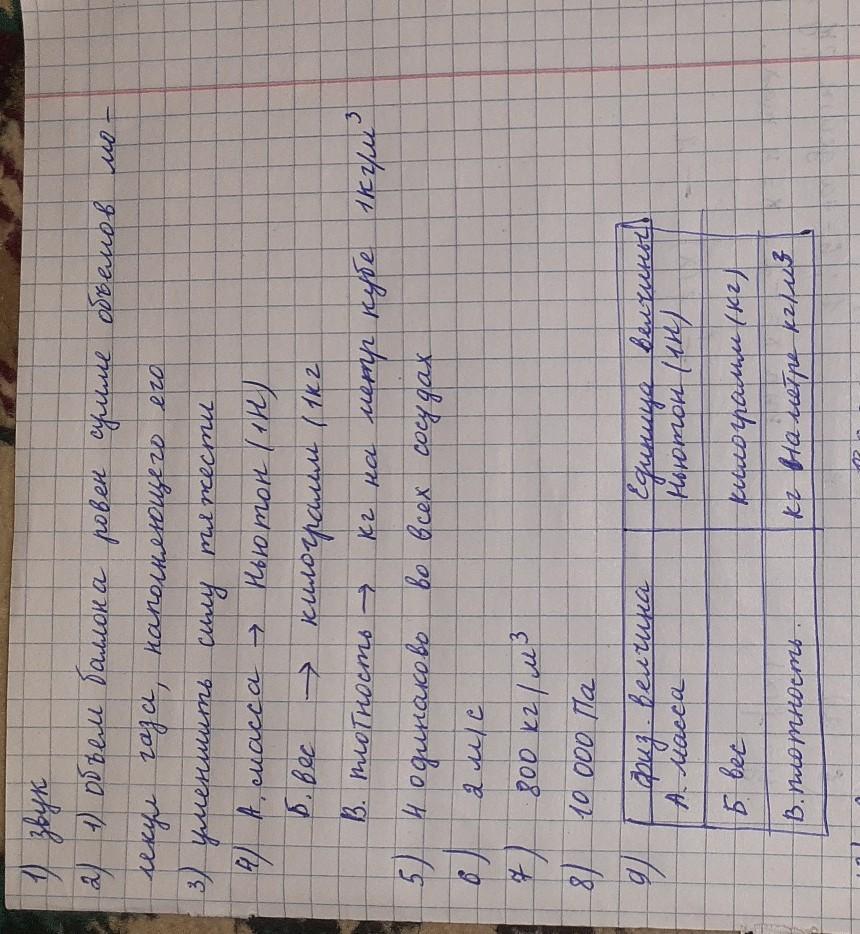 1) звук
2) 1) Объем баллона ровен сумме объемов мо-
лекул газа, наполняющего его
3) уменьшить силу тяжести
4) А. масса → Ньютон (1Н)
Б. вес → килограмм (1кг
В. плотность → кг на метр кубе 1кг/м³
5) 4 одинаково во всех сосудах
6) 2 м/с
7) 800 кг/м³
8) 10 000 Па
9) физ. величина Единица величины
А. масса Ньютон (1Н)
Б вес килограмм (кг)
В. плотность. кг на метре кг/м3